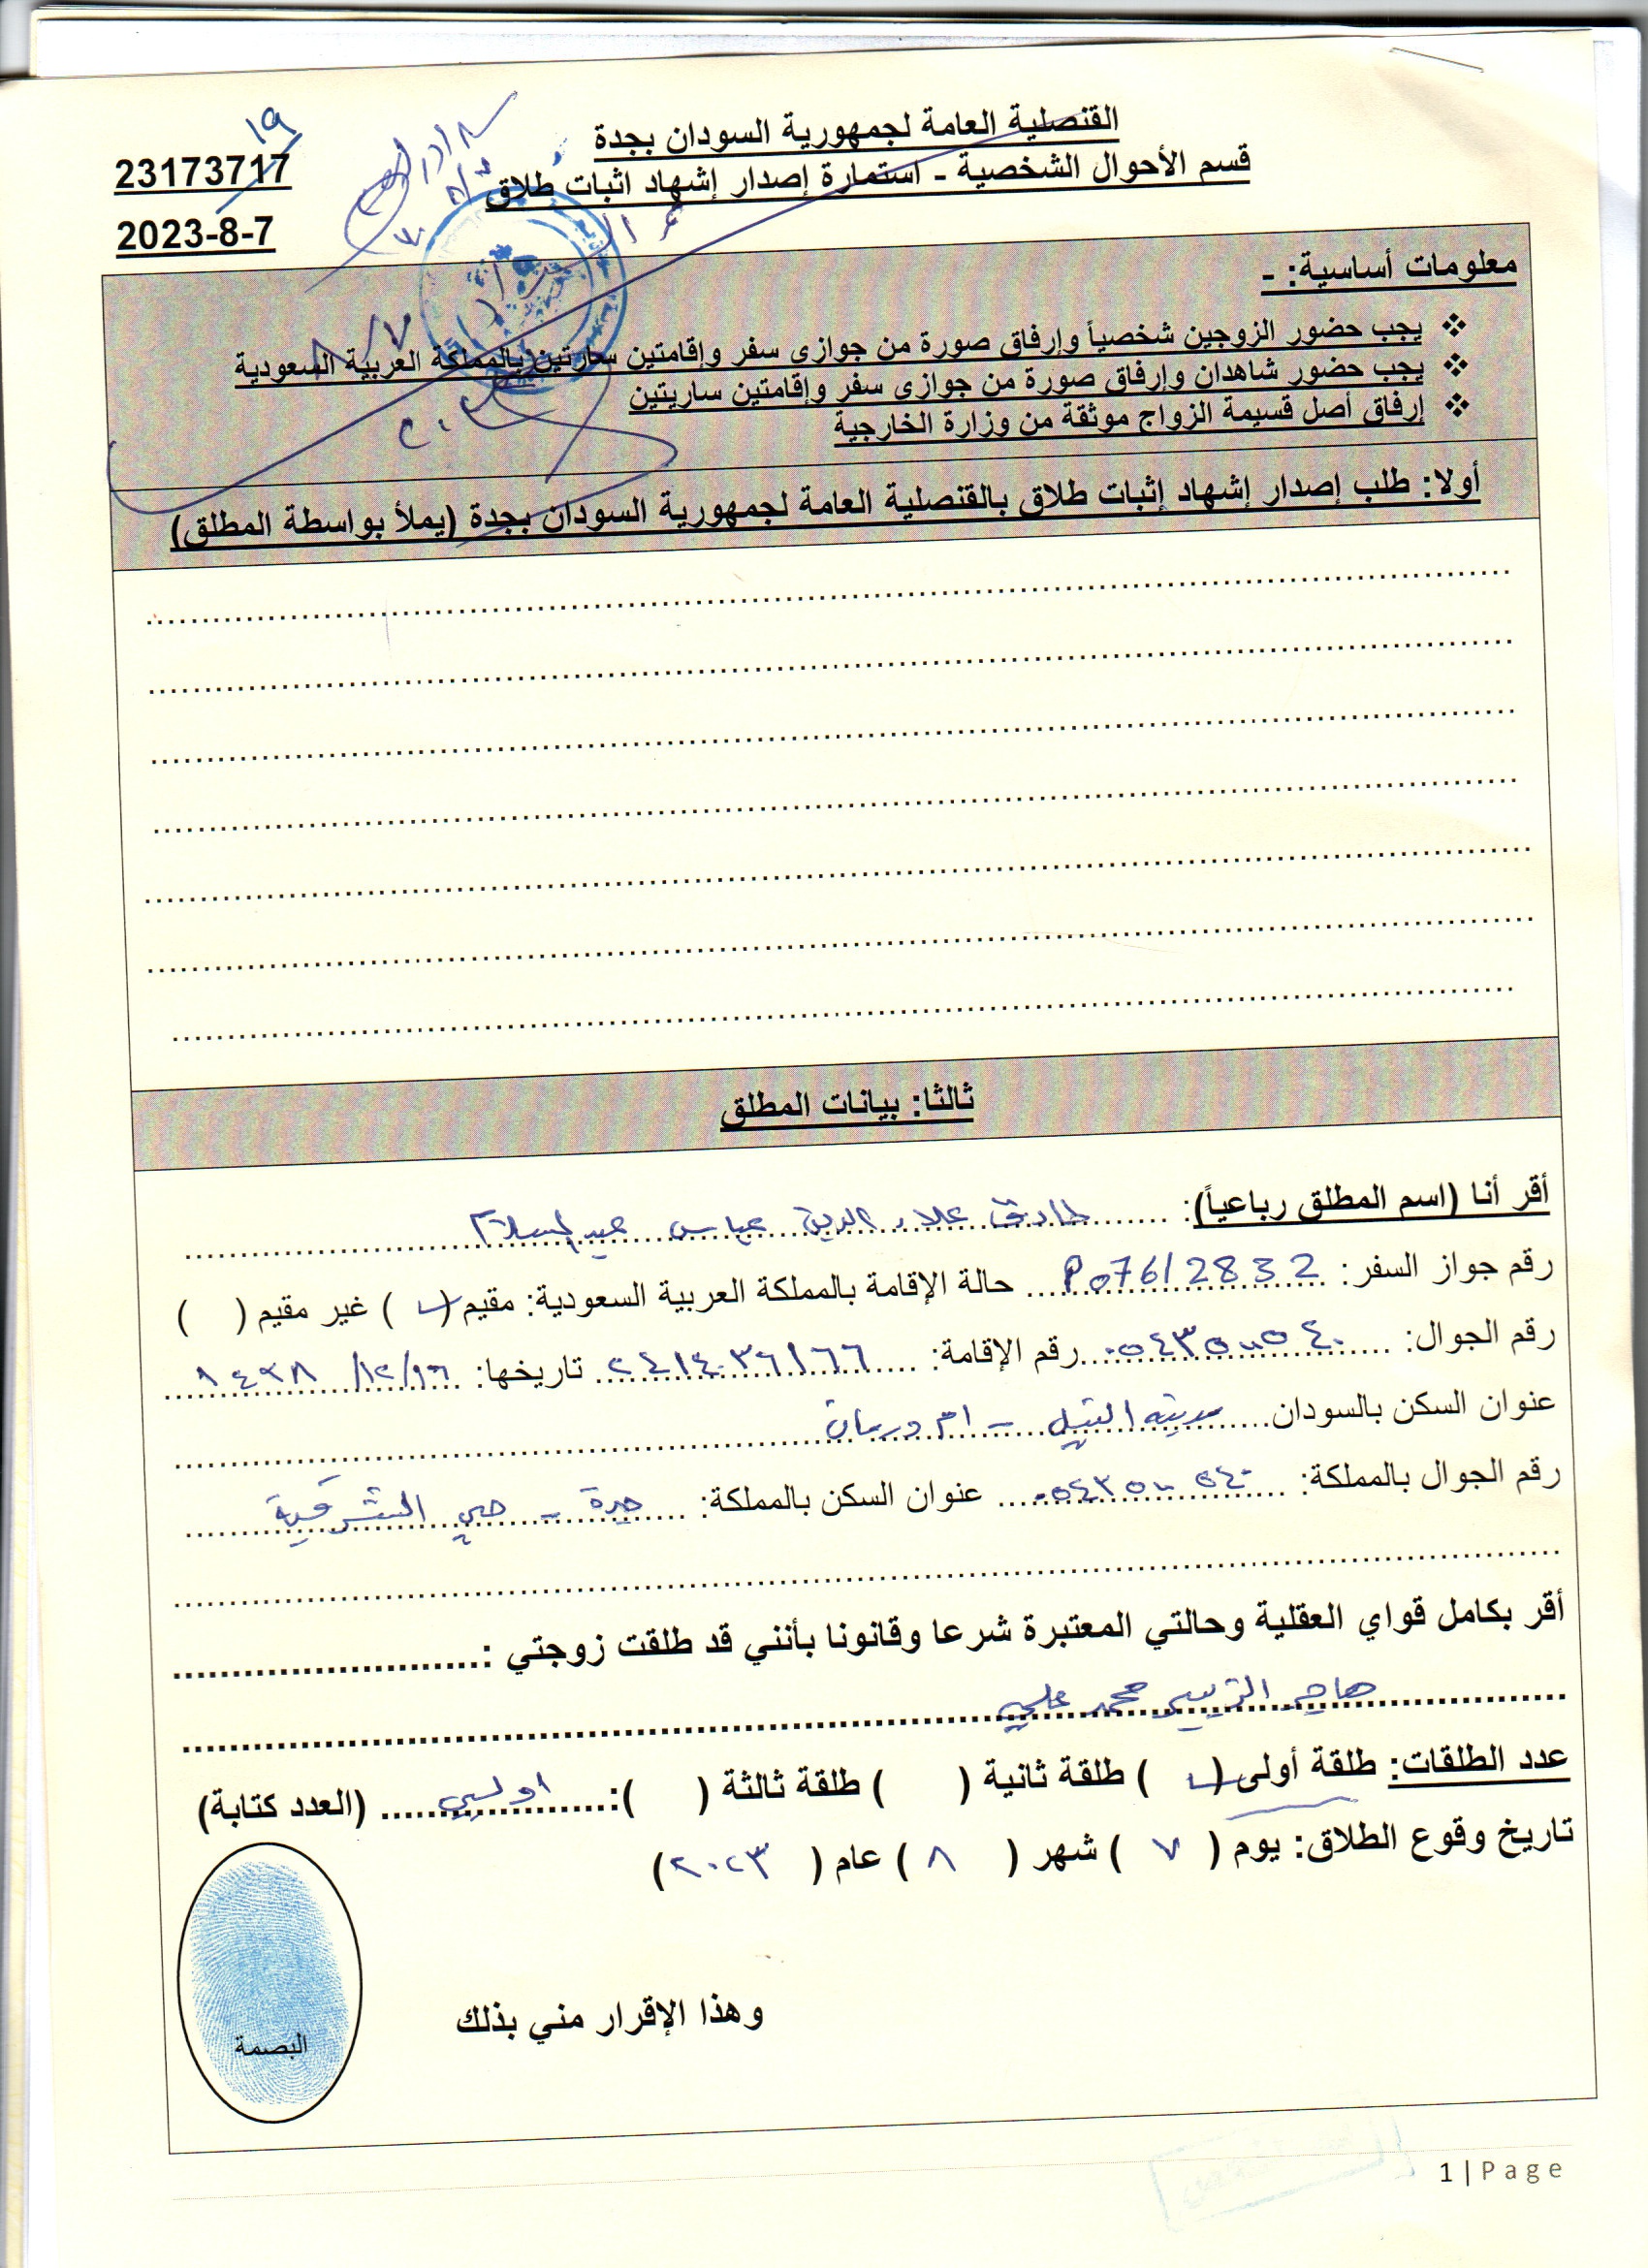 القنصلية العامة لجمهورية السودان بجدة
قسم الأحوال الشخصية - استمارة إصدار إشهاد اثبات طلاق
١٩
23173717
2023-8-7
معلومات أساسية: -
❖ يجب حضور الزوجين شخصياً وإرفاق صورة من جوازي سفر وإقامتين ساريتين بالمملكة العربية السعودية
❖ يجب حضور شاهدان وإرفاق صورة من جوازي سفر وإقامتين ساريتين
❖ إرفاق أصل قسيمة الزواج موثقة من وزارة الخارجية
أولا: طلب إصدار إشهاد إثبات طلاق بالقنصلية العامة لجمهورية السودان بجدة (يملأ بواسطة المطلق)
ثالثا: بيانات المطلق
أقر أنا (اسم المطلق رباعياً): طارق علاء الدين عباس عبد السلام
رقم جواز السفر: P07612832 حالة الإقامة بالمملكة العربية السعودية: مقيم ( ) غير مقيم ( )
رقم الجوال: رقم الإقامة: ٢٤١٤٠٣٦١٦٦ تاريخها:
عنوان السكن بالسودان مدينة النيل - ام درمان
رقم الجوال بالمملكة: عنوان السكن بالمملكة: جدة - حي الشرفية
أقر بكامل قواي العقلية وحالتي المعتبرة شرعا وقانونا بأنني قد طلقت زوجتي :
هاجر الزبير محمد علي
عدد الطلقات: طلقة أولى ( ) طلقة ثانية ( ) طلقة ثالثة ( ): اولى (العدد كتابة)
تاريخ وقوع الطلاق: يوم ( ٧ ) شهر ( ٨ ) عام ( ٢٠٢٣ )
وهذا الإقرار مني بذلك
البصمة
1 | Page